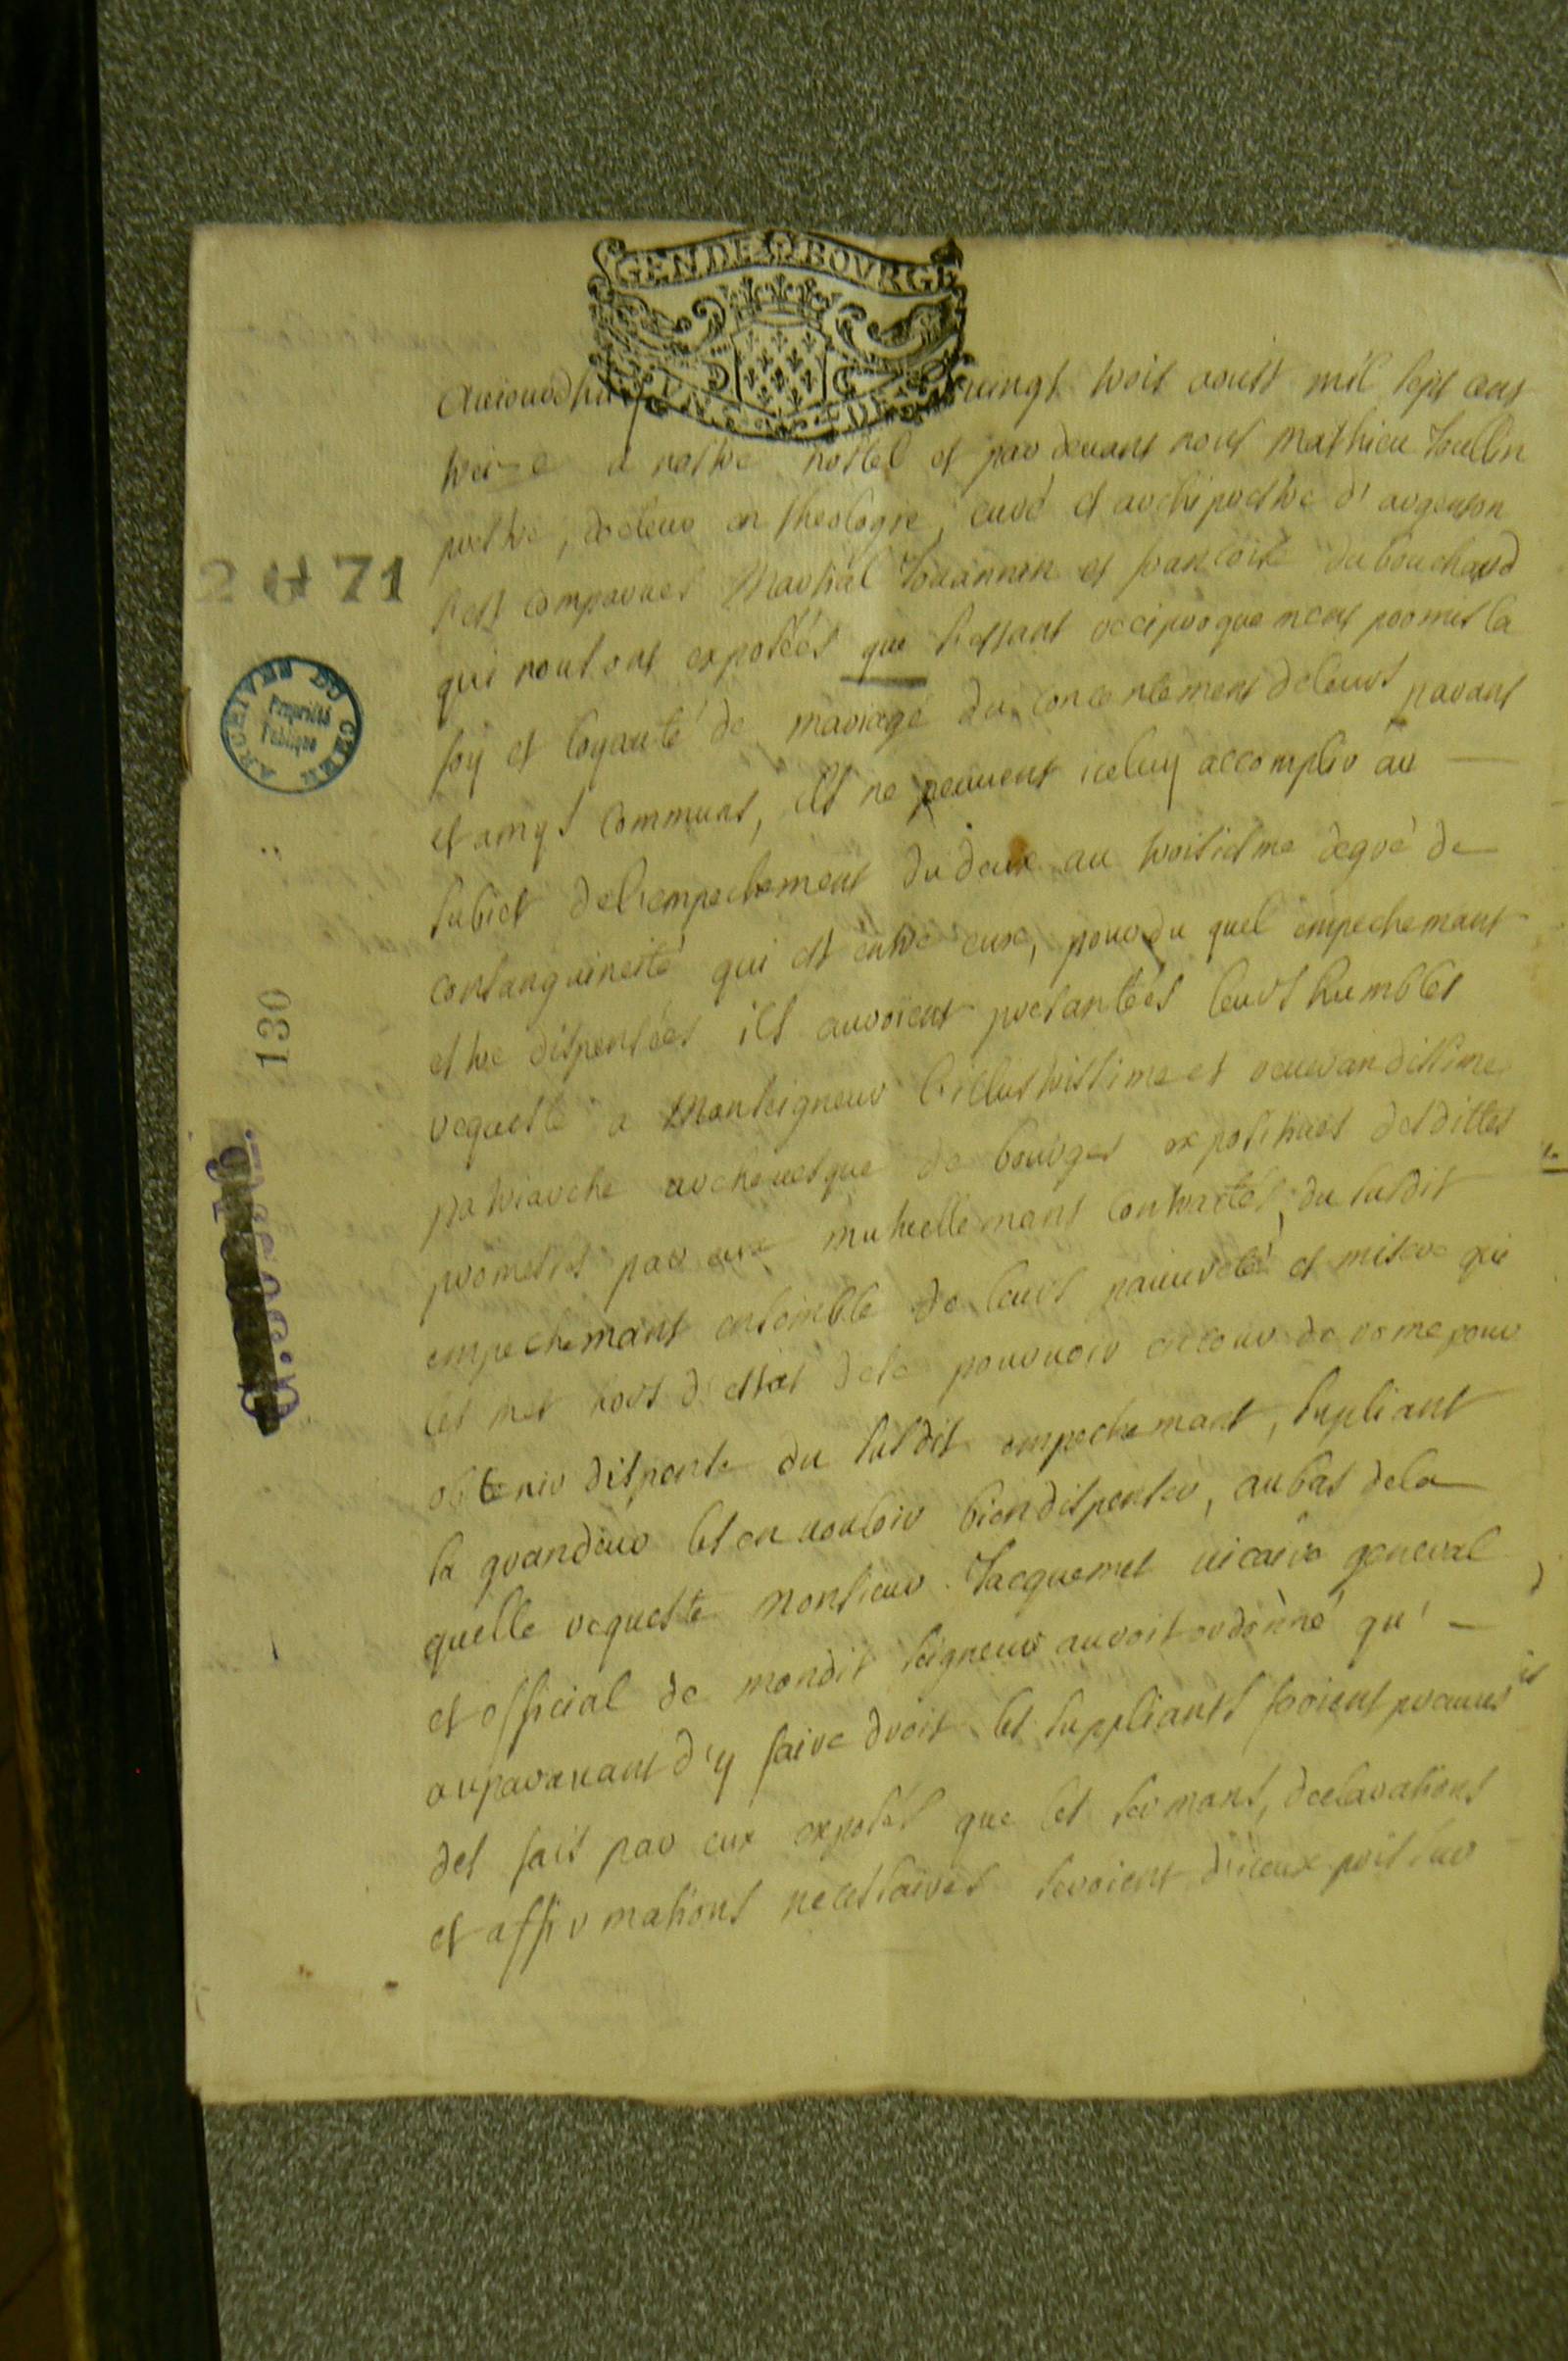 GEN DE BOVRGE
auiourdhuy vingt trois aoust mil sept cens
treize a nostre hostel et par devant nous Mathieu
prestre, docteur en theologie, curé et archiprestre d'argenton
sest comparues Martial Jouannin et francoise dubouchard
qui nous ont exposées que sestant reciproquement promis la
foy et loyauté de mariage du consentement de leurs parans
et amys communs, ils ne peuuent iceluy accomplir au
subiet de l'empechement du deux au troisiesme degré de
consanguineité qui est entre eux, pour du quel empechemant
estre dispensées ils auroient presantées leurs humbles
requeste a Monseigneur l'illustrissime et reuerandissime
patriarche archeuesque de bourges expositiues desdittes
promesses par eux mutuellemant contractés, du susdit
empechemant ensemble de leurs pauureté et misere qui
les met hors d'estat de se pouruoir en cour de rome pour
obtenir dispense du susdit empechemant, supliant
sa grandeur les en vouloir bien dispenser, au bas de la
quelle requeste Monsieur Jacquemet vicaire general
et official de mondit seigneur auroit ordonné qu'
auparavant d'y faire droit les suppliants seroient
des fais par eux exposés que les sermans, declarations
et affirmations necessaires seroient d'iceux pris sur
2 G 71
ARCHIVES DU CHER
Propriété
Publique
130